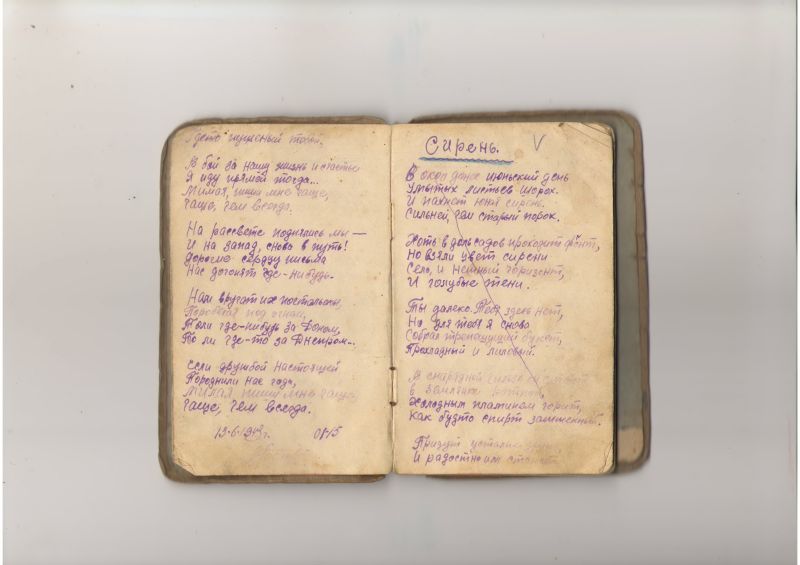 В бой за нашу жизнь и счастье
Я иду прямой тогда...
Милая, пиши мне чаще,
Чаще, чем всегда.
На рассвете поднялись мы —
И на запад, снова в путь!
Дорогие сердцу письма
Нас догонят где-нибудь.
Нам вручат их почтальоны,
под огнём,
То ли где-нибудь за Доном,
То ли где-то за Днепром...
Если дружбой настоящей
Породнили нас года,
Милая пиши мне чаще,
Чаще, чем всегда.
13-6-1943 г. 08-15
Сирень. V
В окоп донёс июньский день
Умытых листьев шорох.
И пахнет юня сирень
Сильней, чем старый порох.
Хоть в доль садов проходит фронт,
Но взяли цвет сирени
Село, и нежный горизонт,
И голубые тени.
Ты далеко. Тебя здесь нет,
Но для тебя я снова
Собрал трепещущий букет,
Прохладный и лиловый.
В снарядной гильзе он
в землянке
Холодным пламенем горит,
Как будто спирт зажженный.
Придут усталые
И радостно им станет